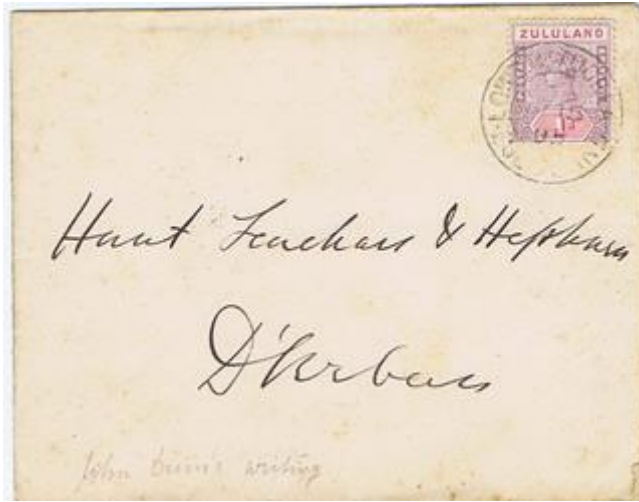 ZULULAND
Hunt Leuchars & Hepburn
D'Urban
John Dunn's writing